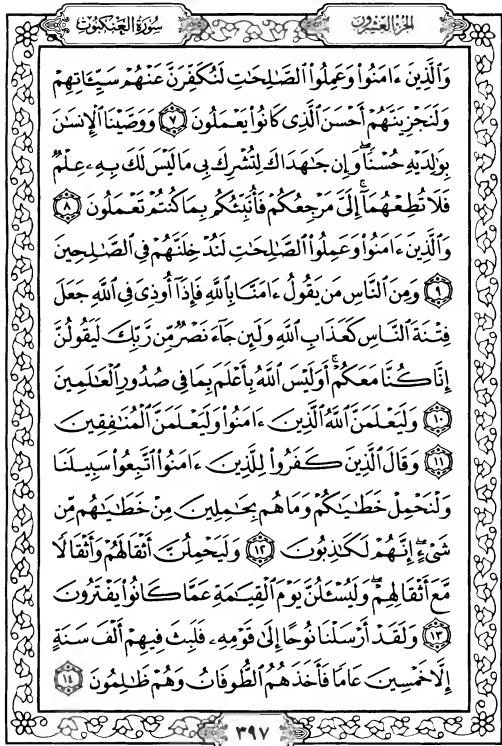 سورة العنكبوت
الجزء العشرون
وَٱلَّذِينَ ءَامَنُوا۟ وَعَمِلُوا۟ ٱلصَّـٰلِحَـٰتِ لَنُكَفِّرَنَّ عَنْهُمْ سَيِّـَٔاتِهِمْ
وَلَنَجْزِيَنَّهُمْ أَحْسَنَ ٱلَّذِى كَانُوا۟ يَعْمَلُونَ ٧ وَوَصَّيْنَا ٱلْإِنسَـٰنَ
بِوَٰلِدَيْهِ حُسْنًا ۖ وَإِن جَـٰهَدَاكَ لِتُشْرِكَ بِى مَا لَيْسَ لَكَ بِهِۦ عِلْمٌ
فَلَا تُطِعْهُمَآ ۚ إِلَىَّ مَرْجِعُكُمْ فَأُنَبِّئُكُم بِمَا كُنتُمْ تَعْمَلُونَ ٨
وَٱلَّذِينَ ءَامَنُوا۟ وَعَمِلُوا۟ ٱلصَّـٰلِحَـٰتِ لَنُدْخِلَنَّهُمْ فِى ٱلصَّـٰلِحِينَ
٩ وَمِنَ ٱلنَّاسِ مَن يَقُولُ ءَامَنَّا بِٱللَّهِ فَإِذَآ أُوذِىَ فِى ٱللَّهِ جَعَلَ
فِتْنَةَ ٱلنَّاسِ كَعَذَابِ ٱللَّهِ وَلَئِن جَآءَ نَصْرٌ مِّن رَّبِّكَ لَيَقُولُنَّ
إِنَّا كُنَّا مَعَكُمْ ۚ أَوَلَيْسَ ٱللَّهُ بِأَعْلَمَ بِمَا فِى صُدُورِ ٱلْعَـٰلَمِينَ
١٠ وَلَيَعْلَمَنَّ ٱللَّهُ ٱلَّذِينَ ءَامَنُوا۟ وَلَيَعْلَمَنَّ ٱلْمُنَـٰفِقِينَ
١١ وَقَالَ ٱلَّذِينَ كَفَرُوا۟ لِلَّذِينَ ءَامَنُوا۟ ٱتَّبِعُوا۟ سَبِيلَنَا
وَلْنَحْمِلْ خَطَـٰيَـٰكُمْ وَمَا هُم بِحَـٰمِلِينَ مِنْ خَطَـٰيَـٰهُم مِّن
شَىْءٍ ۖ إِنَّهُمْ لَكَـٰذِبُونَ ١٢ وَلَيَحْمِلُنَّ أَثْقَالَهُمْ وَأَثْقَالًا
مَّعَ أَثْقَالِهِمْ ۖ وَلَيُسْـَٔلُنَّ يَوْمَ ٱلْقِيَـٰمَةِ عَمَّا كَانُوا۟ يَفْتَرُونَ
١٣ وَلَقَدْ أَرْسَلْنَا نُوحًا إِلَىٰ قَوْمِهِۦ فَلَبِثَ فِيهِمْ أَلْفَ سَنَةٍ
إِلَّا خَمْسِينَ عَامًا فَأَخَذَهُمُ ٱلطُّوفَانُ وَهُمْ ظَـٰلِمُونَ ١٤
٣٩٧